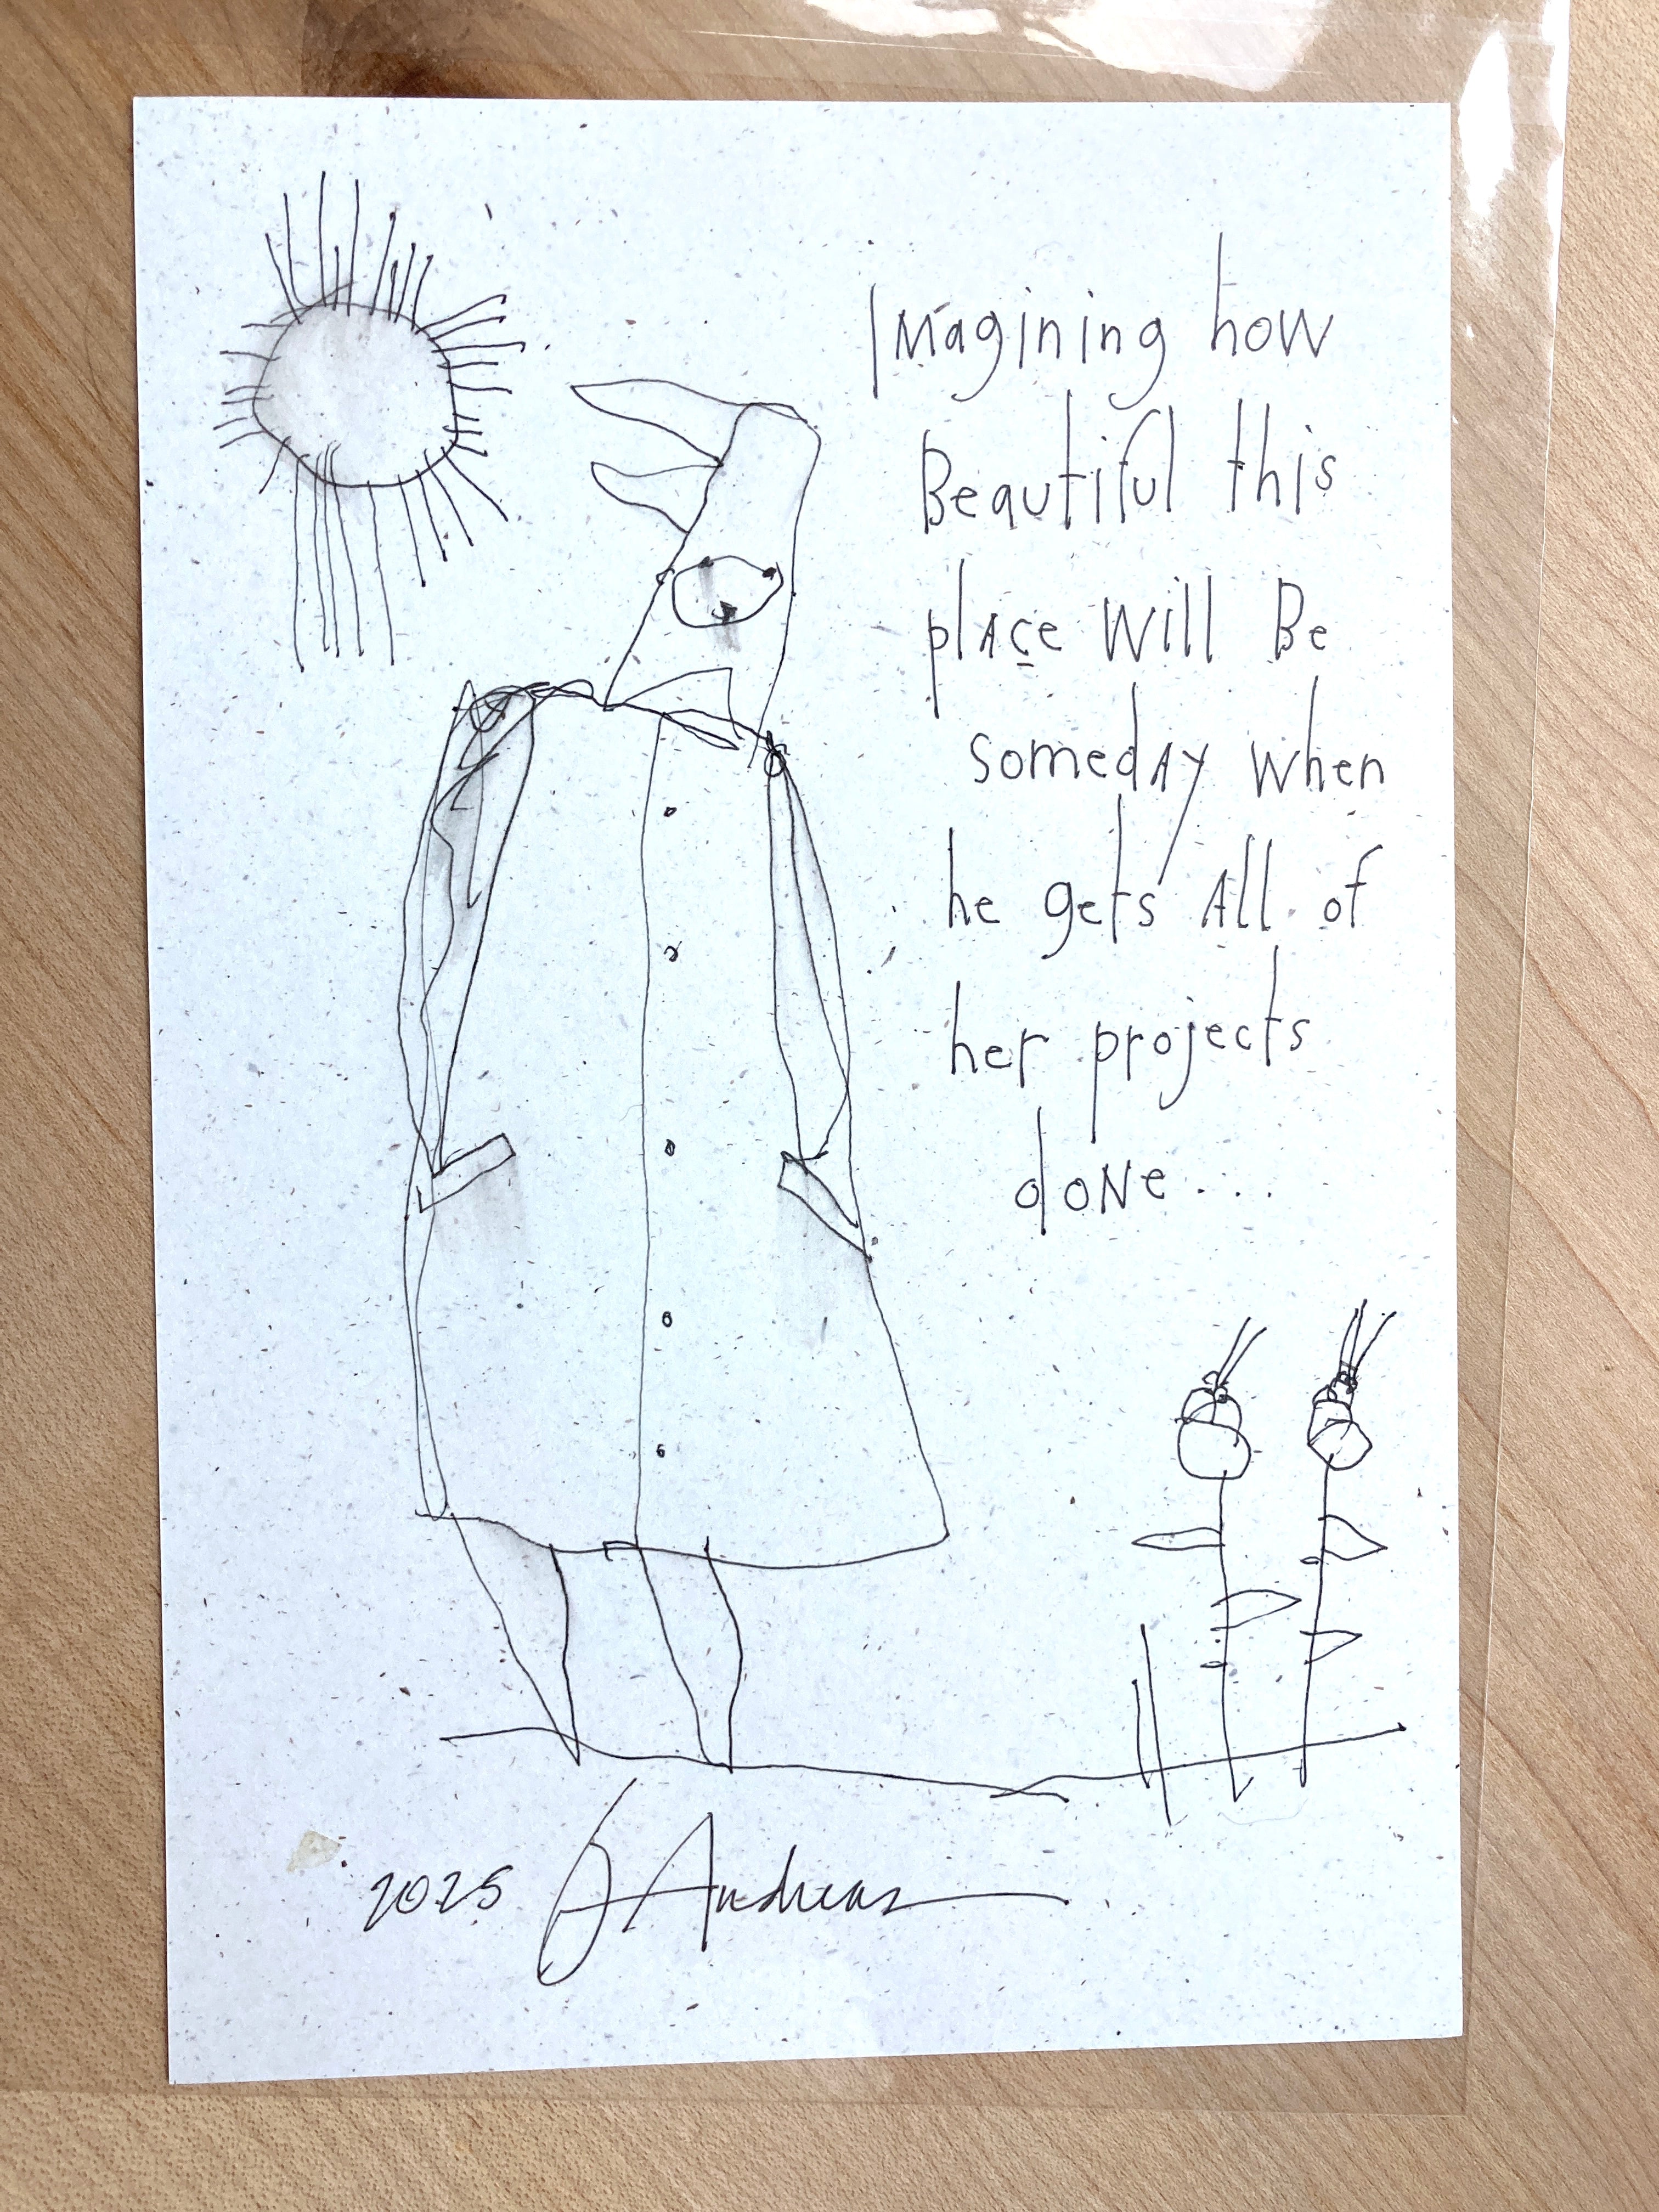 Imagining how
Beautiful this
place will Be
someday when
he gets All of
her projects
done...
2025 Andreas